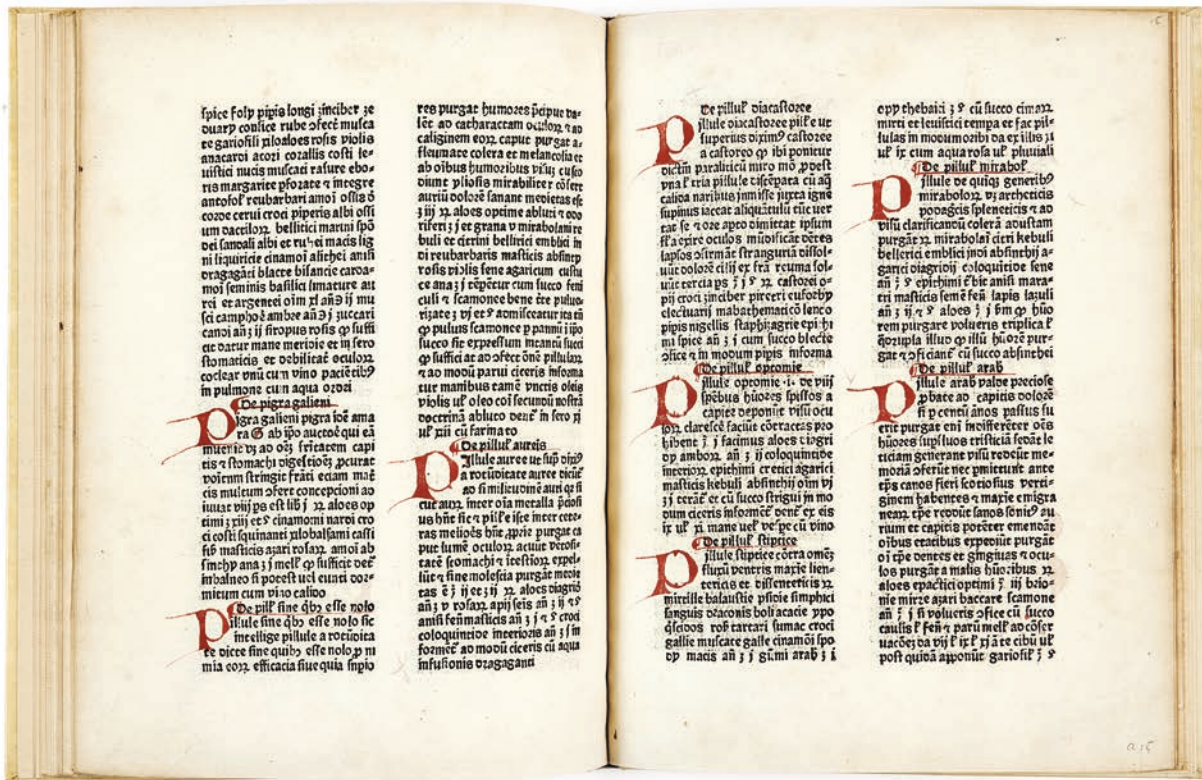 spice folp pipis longi zinciber ze
duarp conlice rube ɔfecte musca
te gariofili xiloaloes rosis violis
anacardi acori corallis costi le⸗
uistici nucis muscati rasure ebo⸗
ris margarite pforate ⁊ integre
antofoł reubarbari amoi ossis ð
corde cerui croci piperis albi ossi
um dactiloꝝ. bellitici marini spō
dei sandali albi et rubei macis lig
ni liquiricie cinamoi alithei anisi
dragagāti blacte bisancie carda⸗
moi seminis basilici limature au
rei et argentei oīm xl an̄ ʒ ij mu
sci camphoē ambre an̄ ʒ j zuccari
canoi an̄ ʒ ij siropus rosis ꝙ suffi
cit datur mane meridie et in sero
stomaticis et debilitat̄ oculoꝝ
coclear vnū cum vino paciētibꝰ
in pulmone cum aqua ordei
De pigra galieni
Pigra galieni pigra idē ama
ra ab ipo auctoē qui eā
inuenit vʒ ad oēs fritatem capi
tis ⁊ stomachi digestioēʒ ꝓcurat
vocinum stringit frāti eciam maē
cis multum ɔfert concepcioni ad
iuuat viij ps est lib j ꝝ aloes op
timi ʒ xiij et ꝰ cinamomi nardi cro
ci costi squinanti xilobalsami cassi
fiō masticis azari rosaꝝ amoi ab
sinchp ana ʒ j meł ꝙ sufficit deē
in balneo si potest uel eunti dor⸗
mitum cum vino calido
De pilł sine q̄bꝫ esse nolo
Pillule sine q̄bꝫ esse nolo sic
intellige pillule a rotūdita
te dicte sine quibꝫ esse nolo ꝓ ni
mia eoꝝ efficacia siue quia impio
res purgat humores p̄cipue va⸗
lēt ad cacharactam oculoꝝ ⁊ ad
caliginem eoꝝ caput purgat a⸗
fleumate colera et melancolia et
ab oibus humoribus visū cusco
diunt pliosis mirabiliter cōferē
auriū dolorē sanant medietas est
ʒ iij ꝝ aloes optime abluti ⁊ odo
riferi ʒ j et grana v mirabolani re
buli et citrini bellirici emblici in
di reubarbaris masticis absintp
rosis violis sene agaricum cuscu
te ana ʒ j tēpētur cum succo feni
culi ⁊ scamonee bene tēte puluo⸗
rizate ʒ vj et ꝰ admisceatur ita tn̄
ꝙ puluis scamonee p pannū ī ipo
succo sic expressum incantū succi
ꝙ sufficit at ad ɔfectōnē pillulaꝝ
et ad modū parui ciceris informa
tur manibus tamē vnctis oleis
violis uł oleo coī secundū nostrā
doctrinā abluto denē in sero xj
uł xiij cū farmato
De pilluł aureis
Pillule auree ut sup dixꝰ
a rotūditate auree dicūē
ad similicudinē auri qꝛ si
cut auꝝ inter oia metalla pciosi
us hn̄t sic ⁊ pilłe iste inter cete⸗
ras melioēs hn̄t ꝓprie purgat ca
put lumē oculoꝝ acuiit vētosi⸗
tatē stomachi ⁊ itestioꝝ expel⸗
lūt ⁊ sine molescia purgāt medie
tas ē ʒ ij et ʒ ij ꝝ aloes diagrio
an̄ ʒ v rosaꝝ apij seis an̄ ʒ ij ⁊ ꝰ
anisi fen̄ masticis an̄ ʒ j ⁊ ꝰ croci
coloquintide interioris an̄ ʒ j in
formēt ad modū ciceris cū aqua
infusionis dragaganti
De pilluł diacastoree
Pillule diacastoree pilłe ut
superius diximꝰ castoree
a castoreo ꝙ ibi ponitur
dictū paraliticū miro mō ꝓdest
vna ł tria pillule distēpata cū aq̄
calida naribus inmisse iuxta igne
supinus iaceat aliquātulū tūc uer
tat se ⁊ ore apto dimittat ipsum
flā exire oculos mūdificat dētes
lapsos ɔfirmāt stranguriā dissol⸗
uūt dolorē cilij ex frā reuma sol⸗
uūt tercia ps ʒ j ꝰ ꝝ castorei o⸗
pij croci zinciber pireeri euforbp
electuarij mabathematicō lenco
pipis nigellis staphizagrie epi hi
mi spice an̄ ʒ j cum succo blecte
ɔfice ⁊ in modum pipis informa
De pilluł optomie
Pillule optomie .i. de viij
spēbus hūores spissos a
capite deponīt visū ocu
loꝝ clarescē faciūt cōtractas pro
hibent ʒ j facimus aloes diagri
dp amboꝝ an̄ ʒ ij coloquintide
interioꝝ epithimi cretici agarici
masticis kebuli absinthij oīm vj
ʒ j terāē et cū succo strigui in mo
dum ciceris informēē denē ex eis
ix uł xi mane ueł vespe cū vino
De pilluł stiptice
Pillule stiptice cōtra omēʒ
fluxū ventris maxie lien⸗
tericis et dissentericis ꝝ
mirtille balaustie psidie simphici
sanguis draconis boli acacie ypo
q̄sidos rob tartari sumac croci
gallie muscate galle cinamōi spo
dp macis an̄ ʒ j gūmi arab ʒ j
opp thebaici ʒ ꝰ cū succo cimaꝝ
mirti et leuistici tempa et fac pil⸗
lulas in modum oribi da ex illis xi
uł ix cum aqua rosa uł pluuiali
De pilluł miraboł
Pillule de quiqꝫ generibꝰ
miraboloꝝ vʒ archeticis
podagcis spleneticis ⁊ ad
visū clarificandū colerā adustam
purgāt ꝝ mirabolai citri kebuli
bellerici emblici indi absinthij a⸗
garici diagridij coloquitide sene
an̄ ʒ ꝰ epithimi ēbic anisi mara⸗
tri masticis semē fen̄ lapis lazuli
an̄ ʒ ij ⁊ ꝰ aloes ʒ j bm̄ ꝙ hūo
rem purgare volueris triplica ł
q̄drupla illud ꝙ illū hūorē pur⸗
gat ⁊ ɔficiant̄ cū succo absinthei
De pilluł arab
Pillule arab valde preciose
ꝓbate ad capitis dolorē
si p centū anos passus fu
erit purgat eni indifferēter oēs
hūores supfluos tristiciā sedāt le
ticiam generant visū redeūt me⸗
moriā ɔferūt nec pmittunt ante
tps canos fieri scotiosius verti⸗
ginem habentes ⁊ maxie emigra
neaꝝ tpe reddūt sanos sonitꝰ au
rium et capitis potēter emendāt
oibus etatibus expediūt purgāt
oi tpe dentes et gingiuas ⁊ ocu⸗
los purgāt a malis hūoribus ꝝ
aloes epactici optimi ʒ iij brio⸗
nie mirze azari baccare scamone
an̄ ʒ j si volueris ɔfice cū succo
caulis ł fen̄ ⁊ parū melł ad cōser
uacōeʒ da vij ł ix ł xj ate cibū uł
post quidā apponūt gariofił ʒ ꝰ
a 15